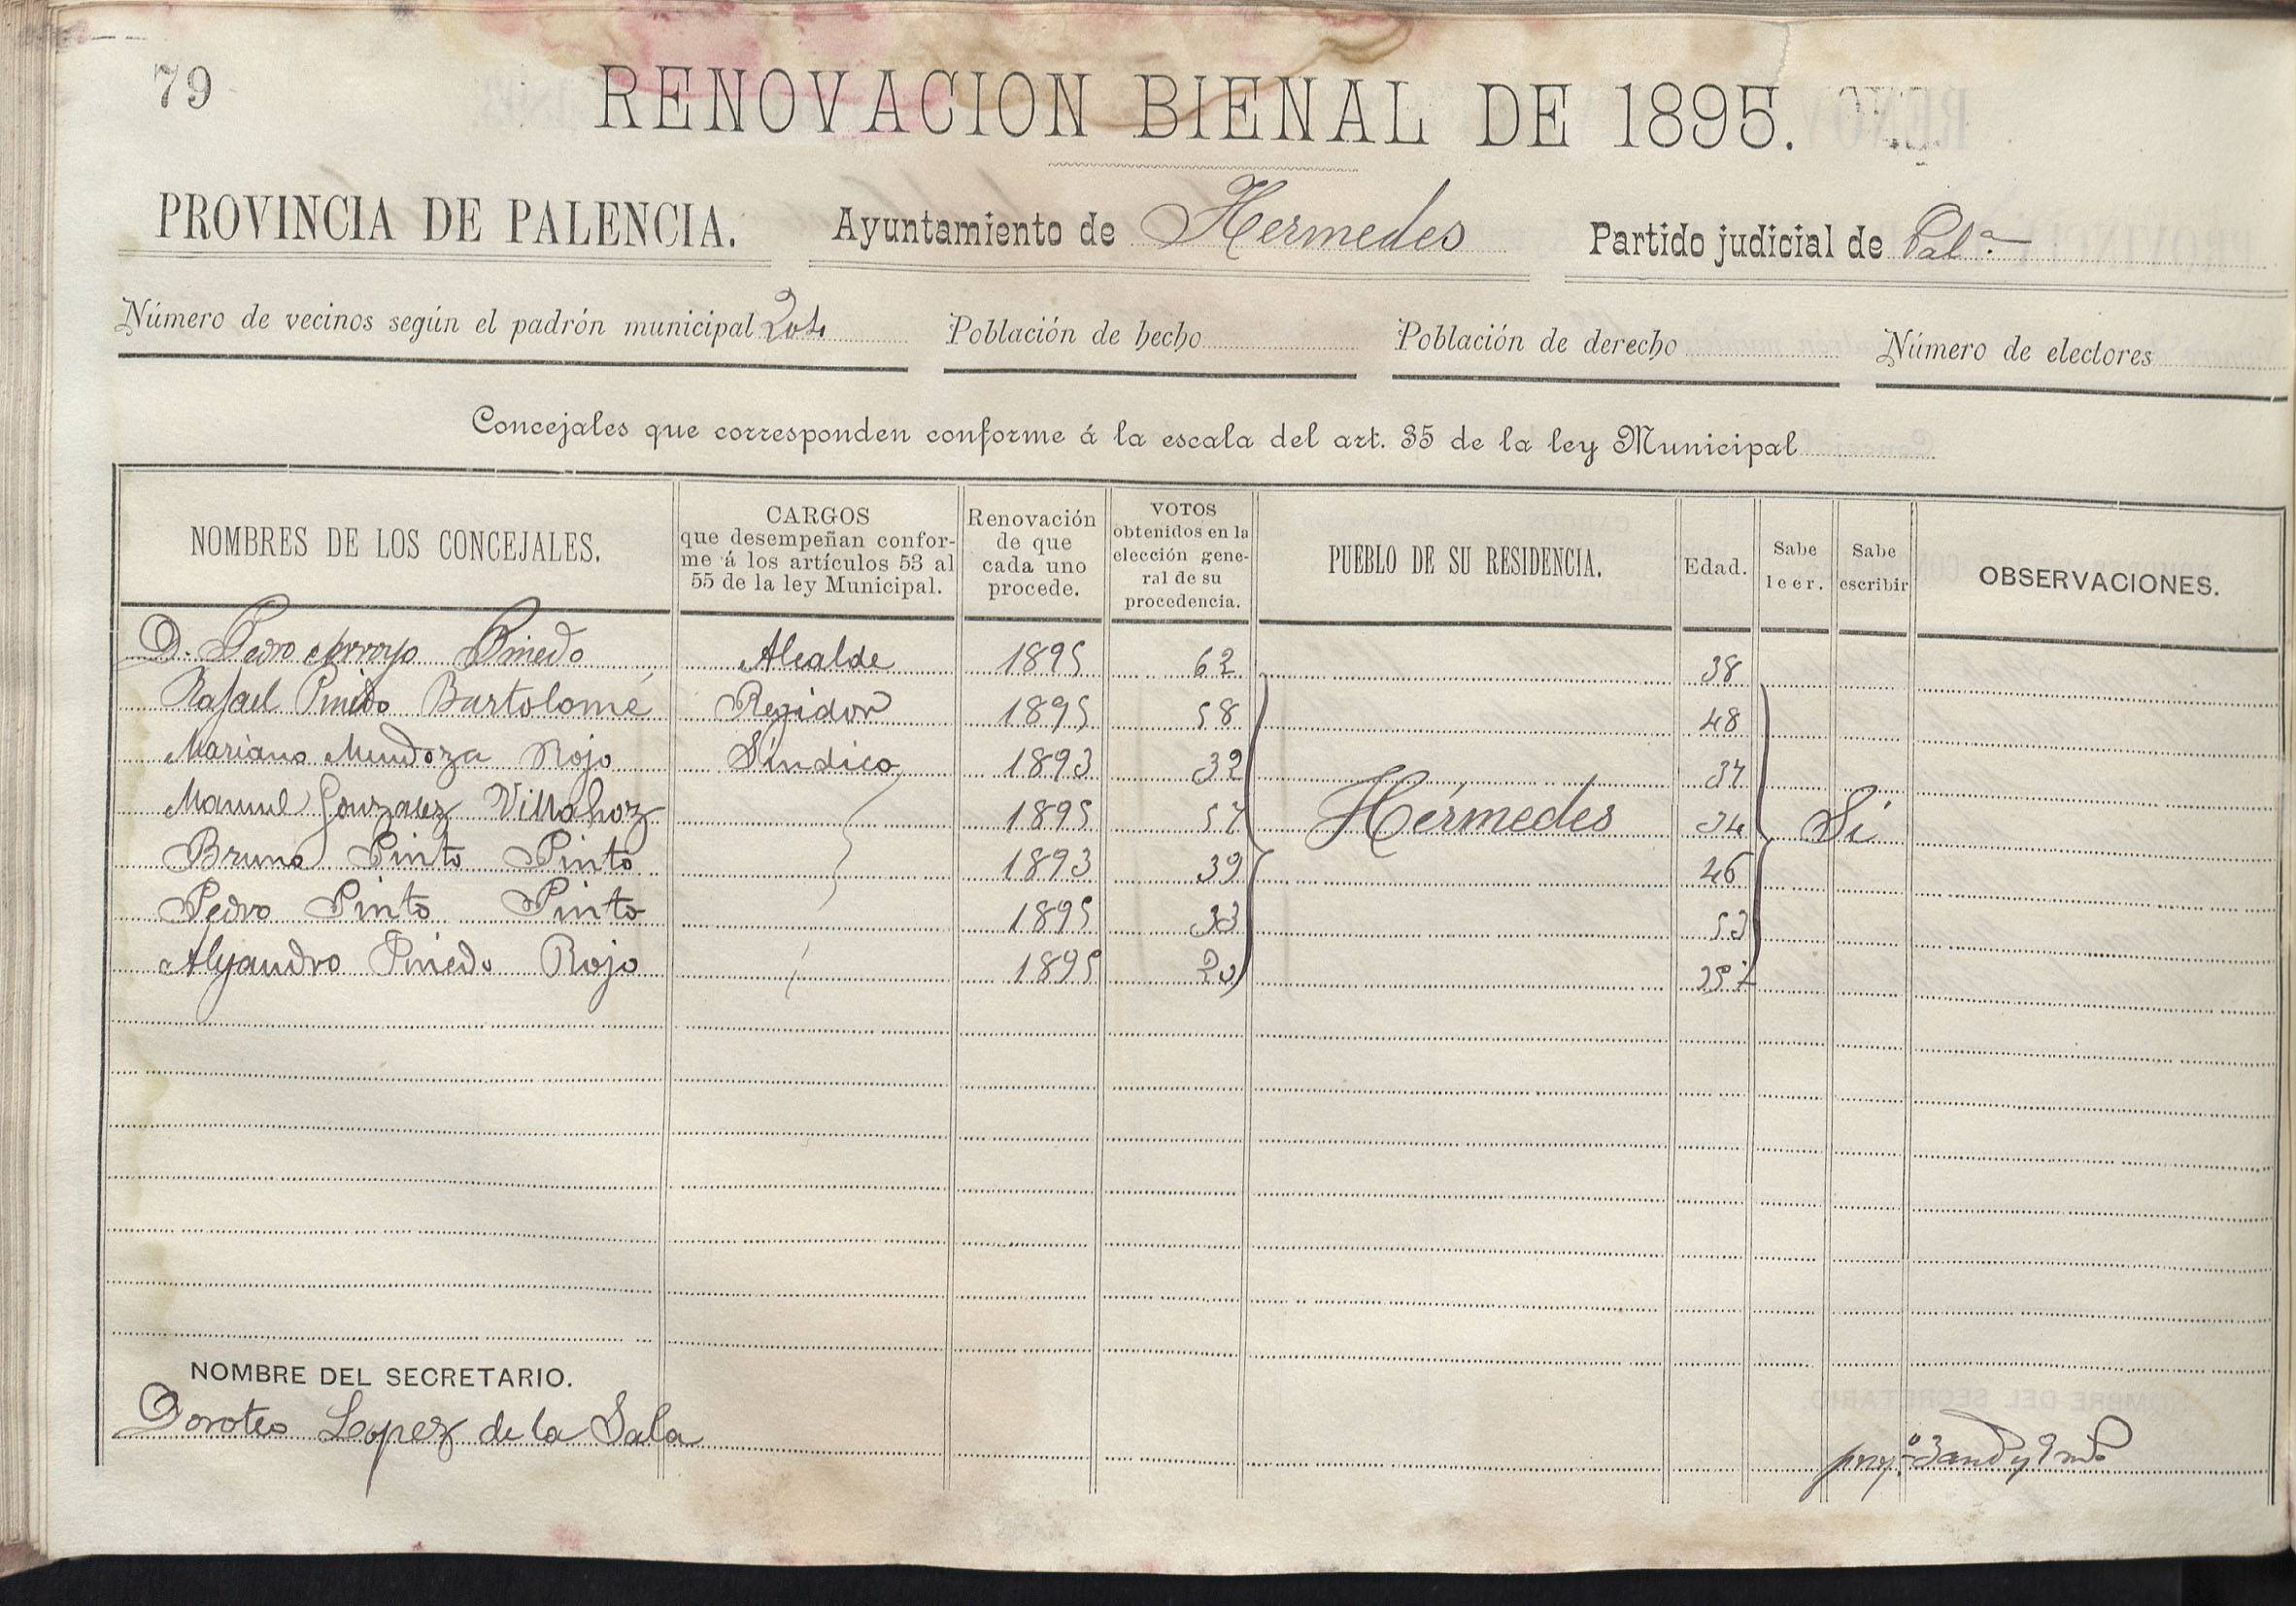 79
RENOVACION BIENAL DE 1895.
PROVINCIA DE PALENCIA. Ayuntamiento de Hermedes Partido judicial de Pal.ª
Número de vecinos según el padrón municipal 204 Población de hecho Población de derecho Número de electores
Concejales que corresponden conforme á la escala del art. 35 de la ley Municipal
NOMBRES DE LOS CONCEJALES.
CARGOS
que desempeñan confor-
me á los artículos 53 al
55 de la ley Municipal.
Renovación
de que
cada uno
procede.
VOTOS
obtenidos en la
elección gene-
ral de su
procedencia.
PUEBLO DE SU RESIDENCIA.
Edad.
Sabe
leer.
Sabe
escribir
OBSERVACIONES.
D. Pedro Arroyo Pinedo Alcalde 1895 62 38
Rafael Pinedo Bartolomé Regidor 1895 58 48
Mariano Mendoza Rojo Síndico 1893 32 37
Manuel Gonzalez Villahoz 1895 57 Hermedes 34 Si
Bruno Pinto Pinto 1893 39 46
Pedro Pinto Pinto 1895 33 53
Alejandro Pinedo Rojo 1895 20
NOMBRE DEL SECRETARIO.
Doroteo Lopez de la Sala